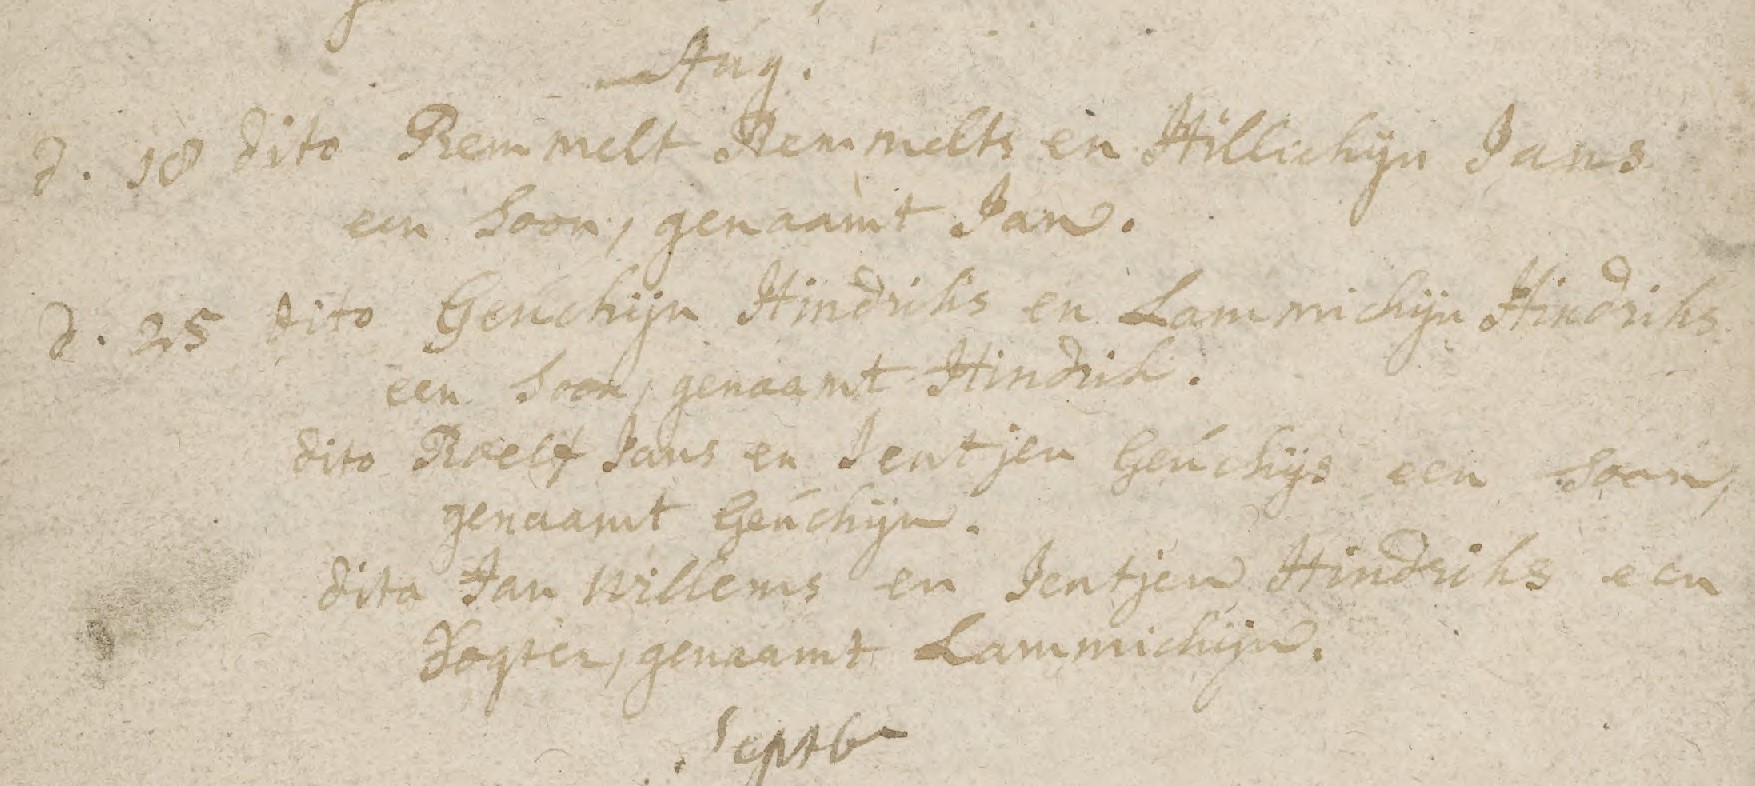 Aug.
d. 18 dito Remmelt Remmelts en Hillichijn Jans
een Soon, genaamt Jan.
d. 25 dito Geuchijn Hindriks en Lammichijn Hindriks
een Soon, genaamt Hindrik.
dito Roelf Jans en Jentjen Geuchijs een Soon,
genaamt Geuchijn.
dito Jan Willems en Jentjen Hindriks een
Dogter, genaamt Lammichijn.
Septb